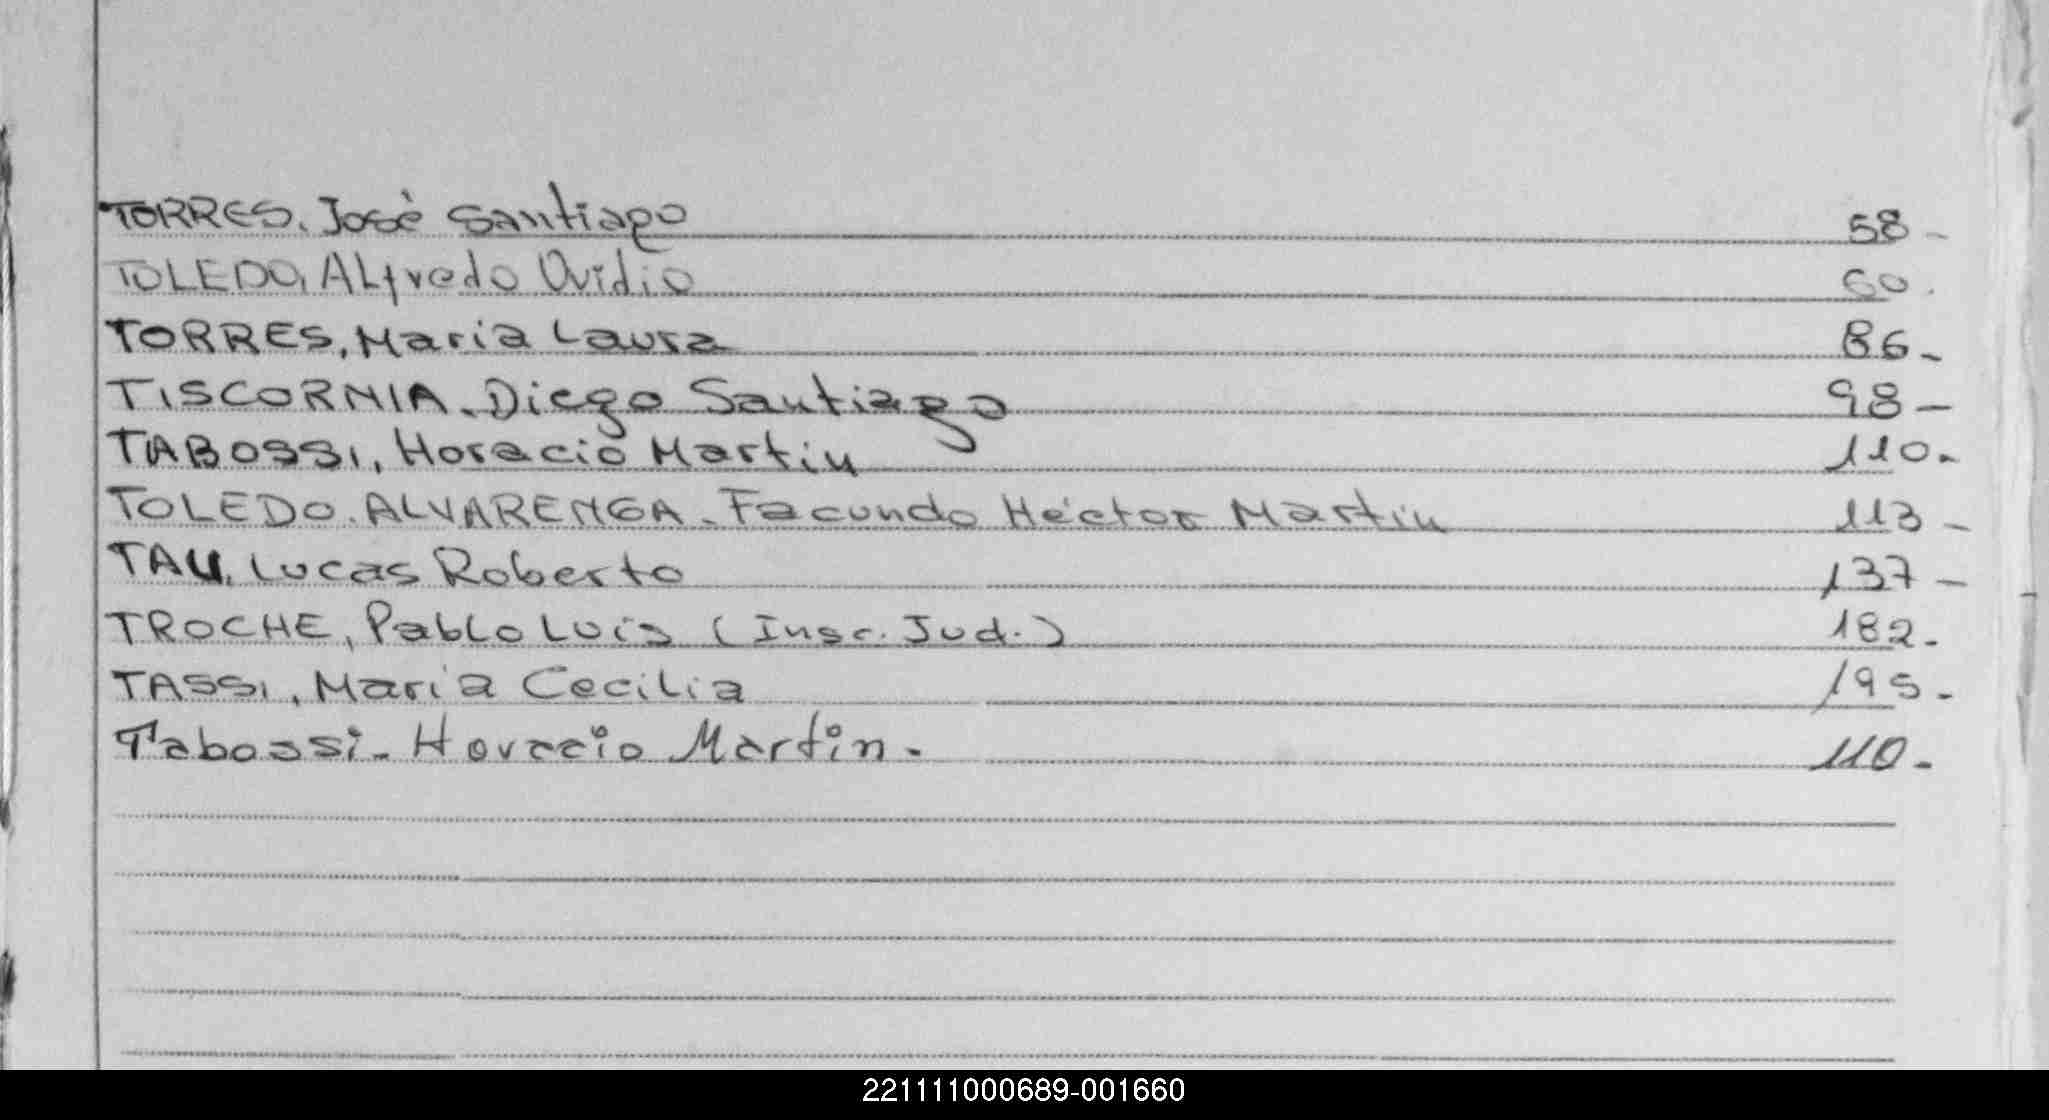 TORRES, José Santiago 58-
TOLEDO, ALfredo Ovidio 60.
TORRES, Maria Laura 86-
TISCORNIA. Diego Santiago 98-
TABOSSI, Horacio Martin 110-
TOLEDO. ALVARENGA. Facundo Héctor Martin 113-
TAU, Lucas Roberto 137-
TROCHE, PabLo Luis (Insc. Jud.) 182-
TASSI, María CeciLia 195-
Tabossi- Horacio Martin. 110-
221111000689-001660